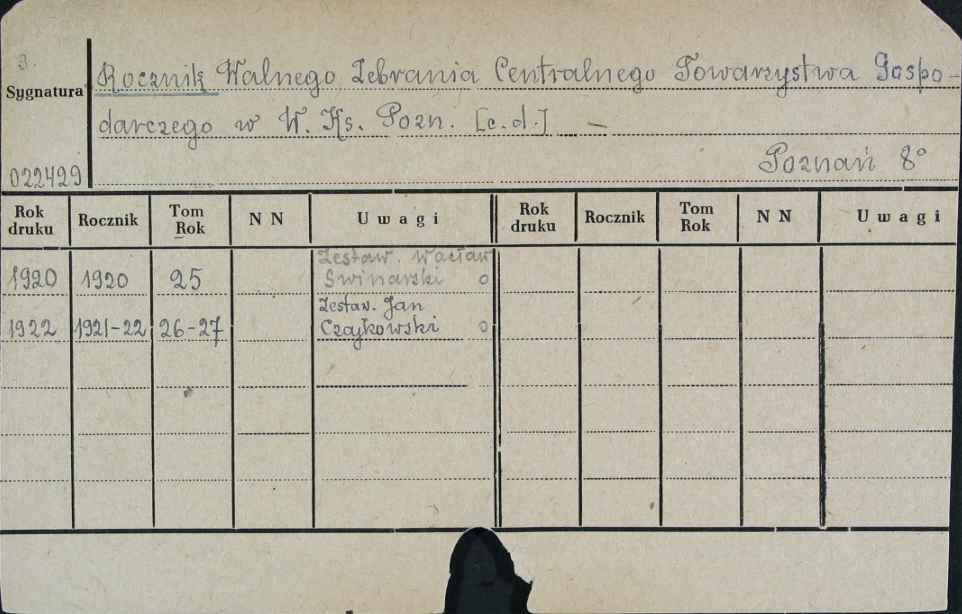 3.
Sygnatura
022429
Rocznik Walnego Zebrania Centralnego Towarzystwa Gospo-
darczego w W. Ks. Pozn. [c.d.] —
Poznań 8°
Rok druku Rocznik Tom Rok N N Uwagi Rok druku Rocznik Tom Rok N N Uwagi
Zestaw. Wacław
1920 1920 25 Swinarski o
Zestaw. Jan
1922 1921-22 26-27 Czajkowski o